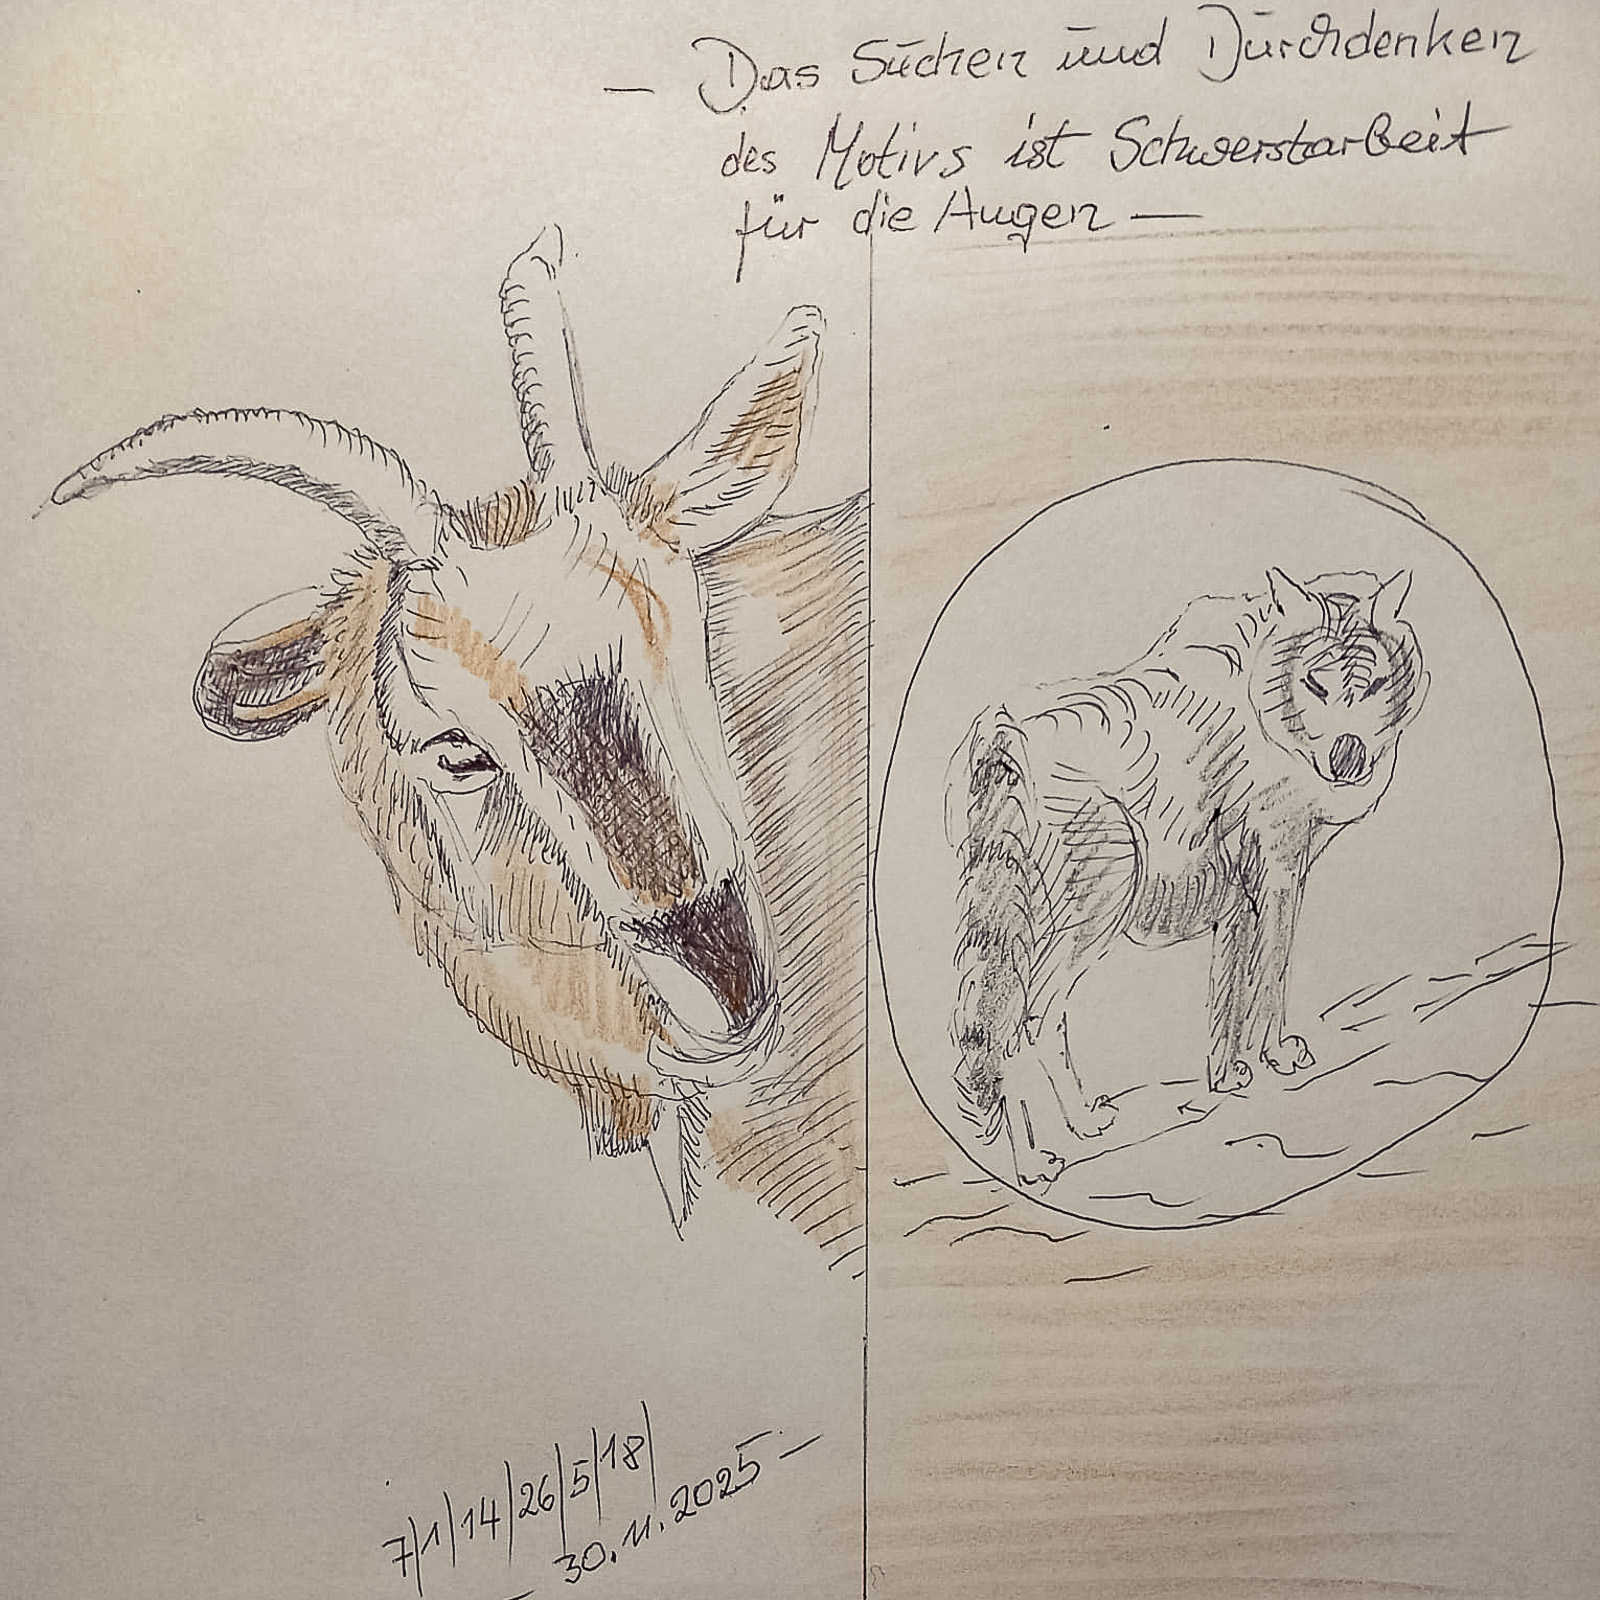 – Das Suchen und Durchdenken
des Motivs ist Schwerstarbeit
für die Augen –
7|1|14|26|5|18|
– 30.11.2025 –